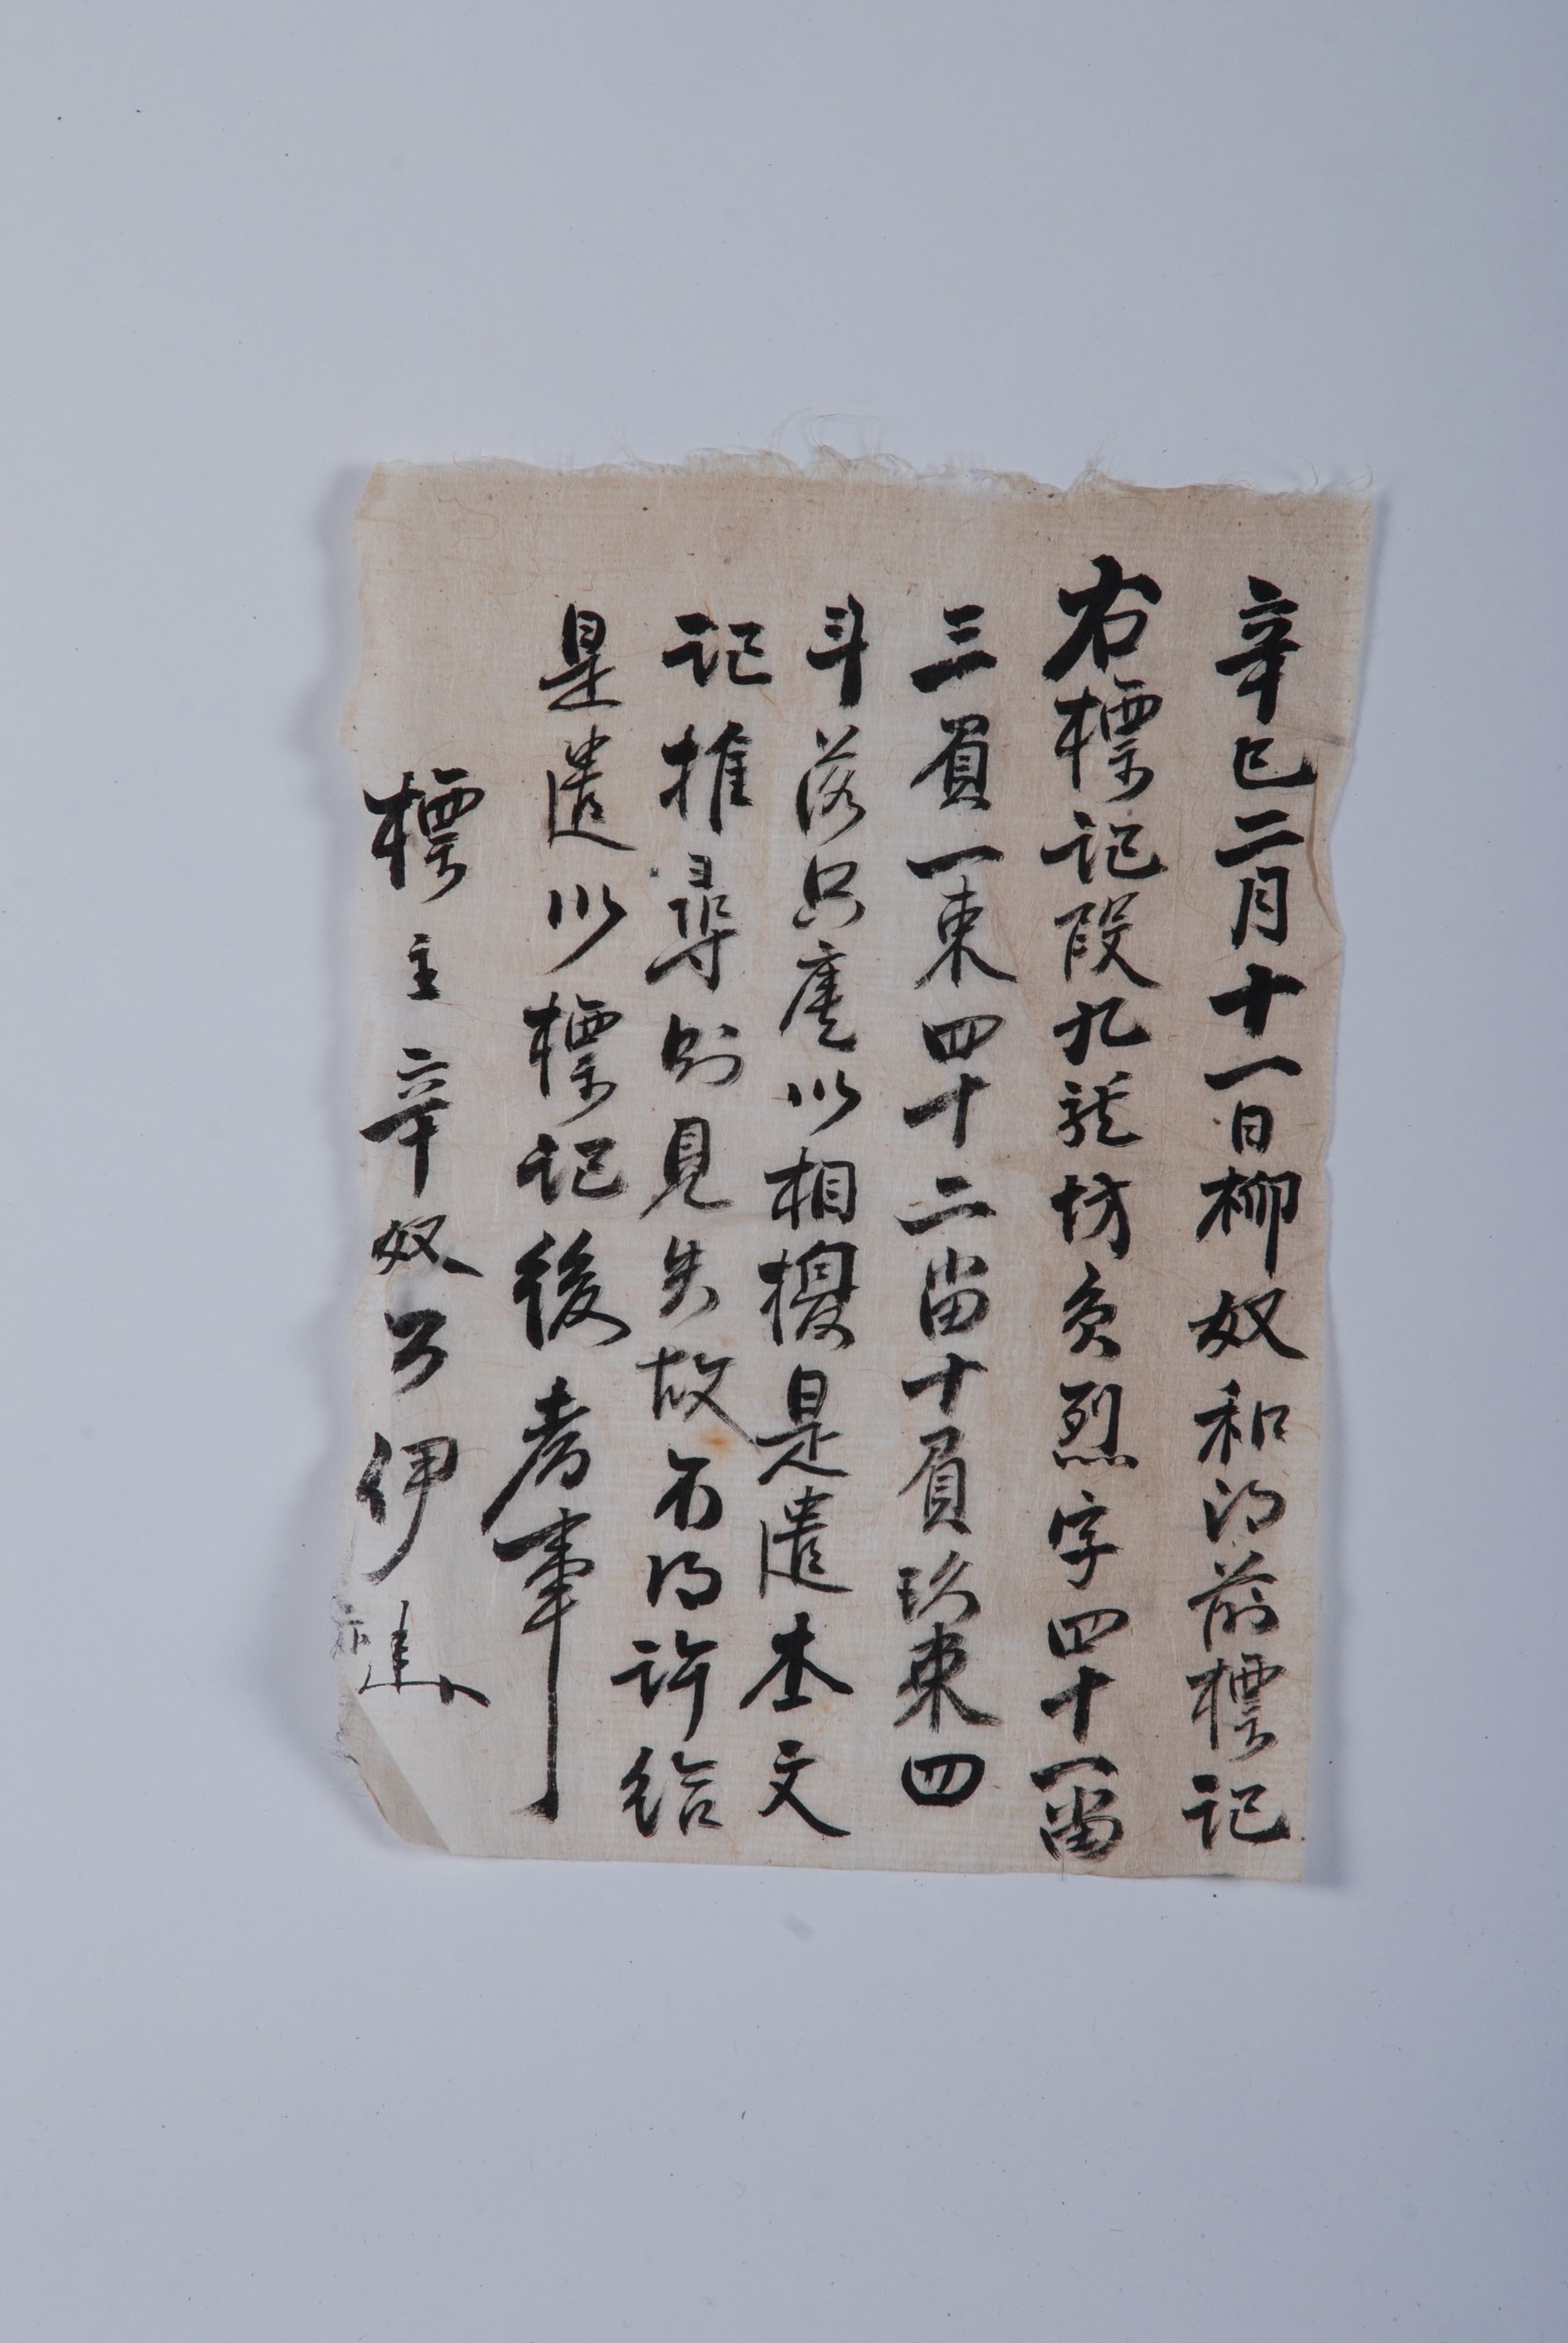 辛巳二月十一日柳奴和得前標記
右標記段九龍坊員烈字四十一畓
三負一束四十二畓十負玖束四
斗落只庫以相換是遣本文
記推尋則見失故不得許給
是遣以標記後考事
標主辛奴公伊